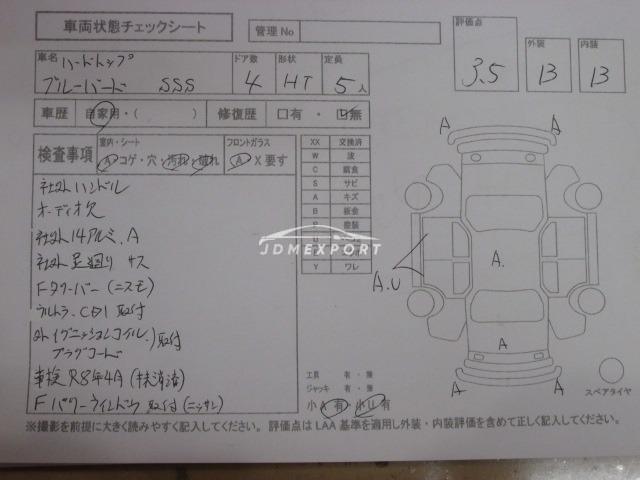 車両状態チェックシート
管理No
評価点 3.5
外装 B
内装 B
車名 ハードトップ
ブルーバード SSS
ドア数 4
形状 HT
定員 5人
車歴 自家用・( )
修復歴 口有・口無
検査事項
室内・シート
A コゲ・穴・汚れ・破れ
フロントガラス
A X要す
社外ハンドル
オーディオ欠
社外14アルミ.A
社外足廻り サス
Fタワーバー(ニスモ)
ウルトラ.CDI取付
外イグニッションコイル.)取付
プラグコード
車検R8年4A(抹消済)
Fパワーウインドウ取付(ニッサン)
XX 交換済
W 波
C 腐食
S サビ
A キズ
B 鈑金
P 塗装
Y ワレ
JDMEXPORT
A
A
A.U
A.
A
A
A
工具 有・無
ジャッキ 有・無
小A有 小U有
スペアタイヤ
※撮影を前提に大きく読みやすく記入してください。評価点はLAA基準を適用し外装・内装評価を含めて正しく記入してください。